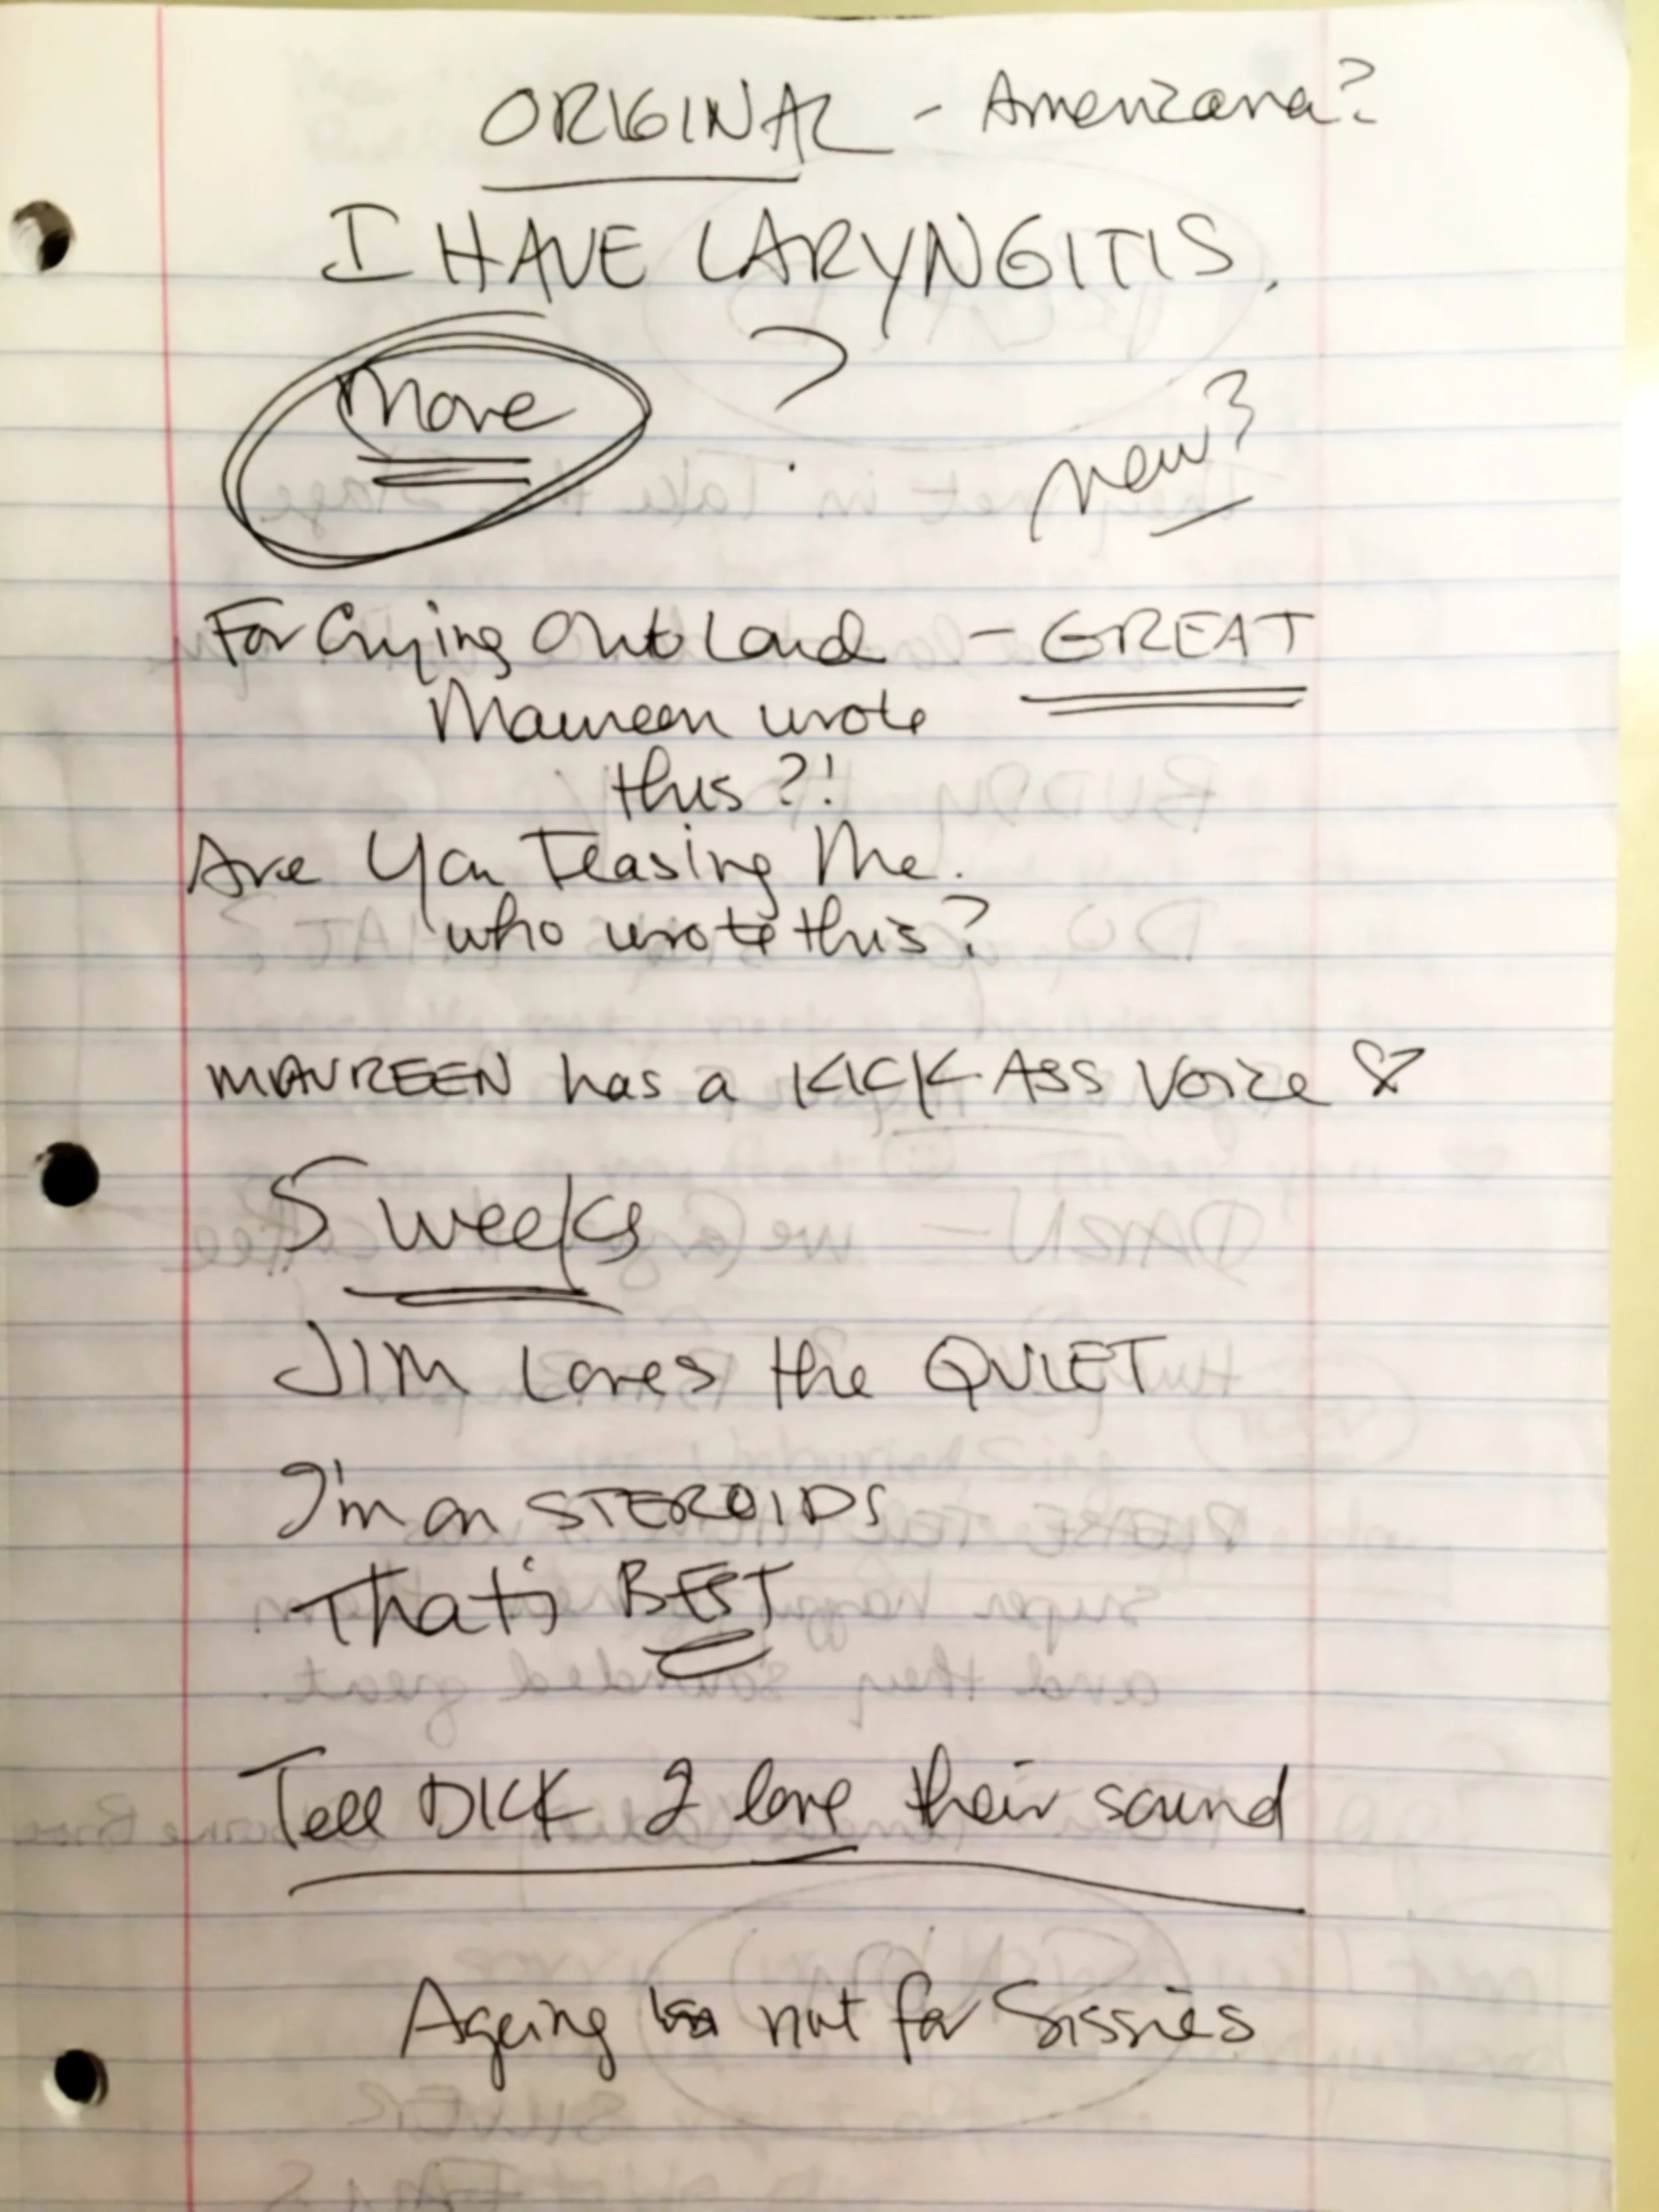 ORIGINAL - Americana?
I HAVE LARYNGITIS.
move ? new?
For Crying Out Loud - GREAT
Maureen wrote
this?!
Are You Teasing Me.
who wrote this?
MAUREEN has a KICK-ASS Voice ♡
5 weeks
JIM Loves the QUIET
I'm on STEROIDS
That's BEST
Tell DICK I love their sound
Ageing is not for Sissies